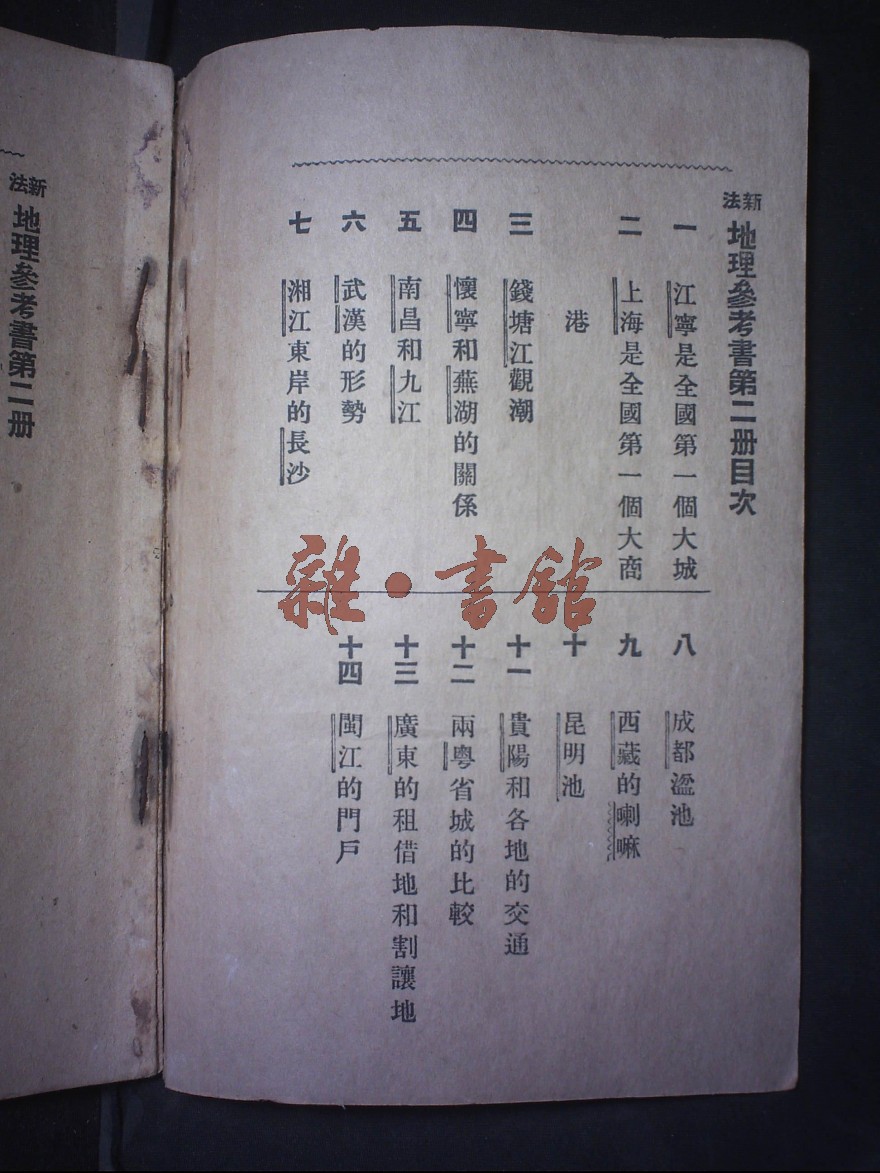 新法地理參考書第二册目次
一 江寧是全國第一個大城
二 上海是全國第一個大商
港
三 錢塘江觀潮
四 懷寧和蕪湖的關係
五 南昌和九江
六 武漢的形勢
七 湘江東岸的長沙
八 成都盆池
九 西藏的喇嘛
十 昆明池
十一 貴陽和各地的交通
十二 兩粵省城的比較
十三 廣東的租借地和割讓地
十四 閩江的門戶
雜·書館
新法地理參考書第二册